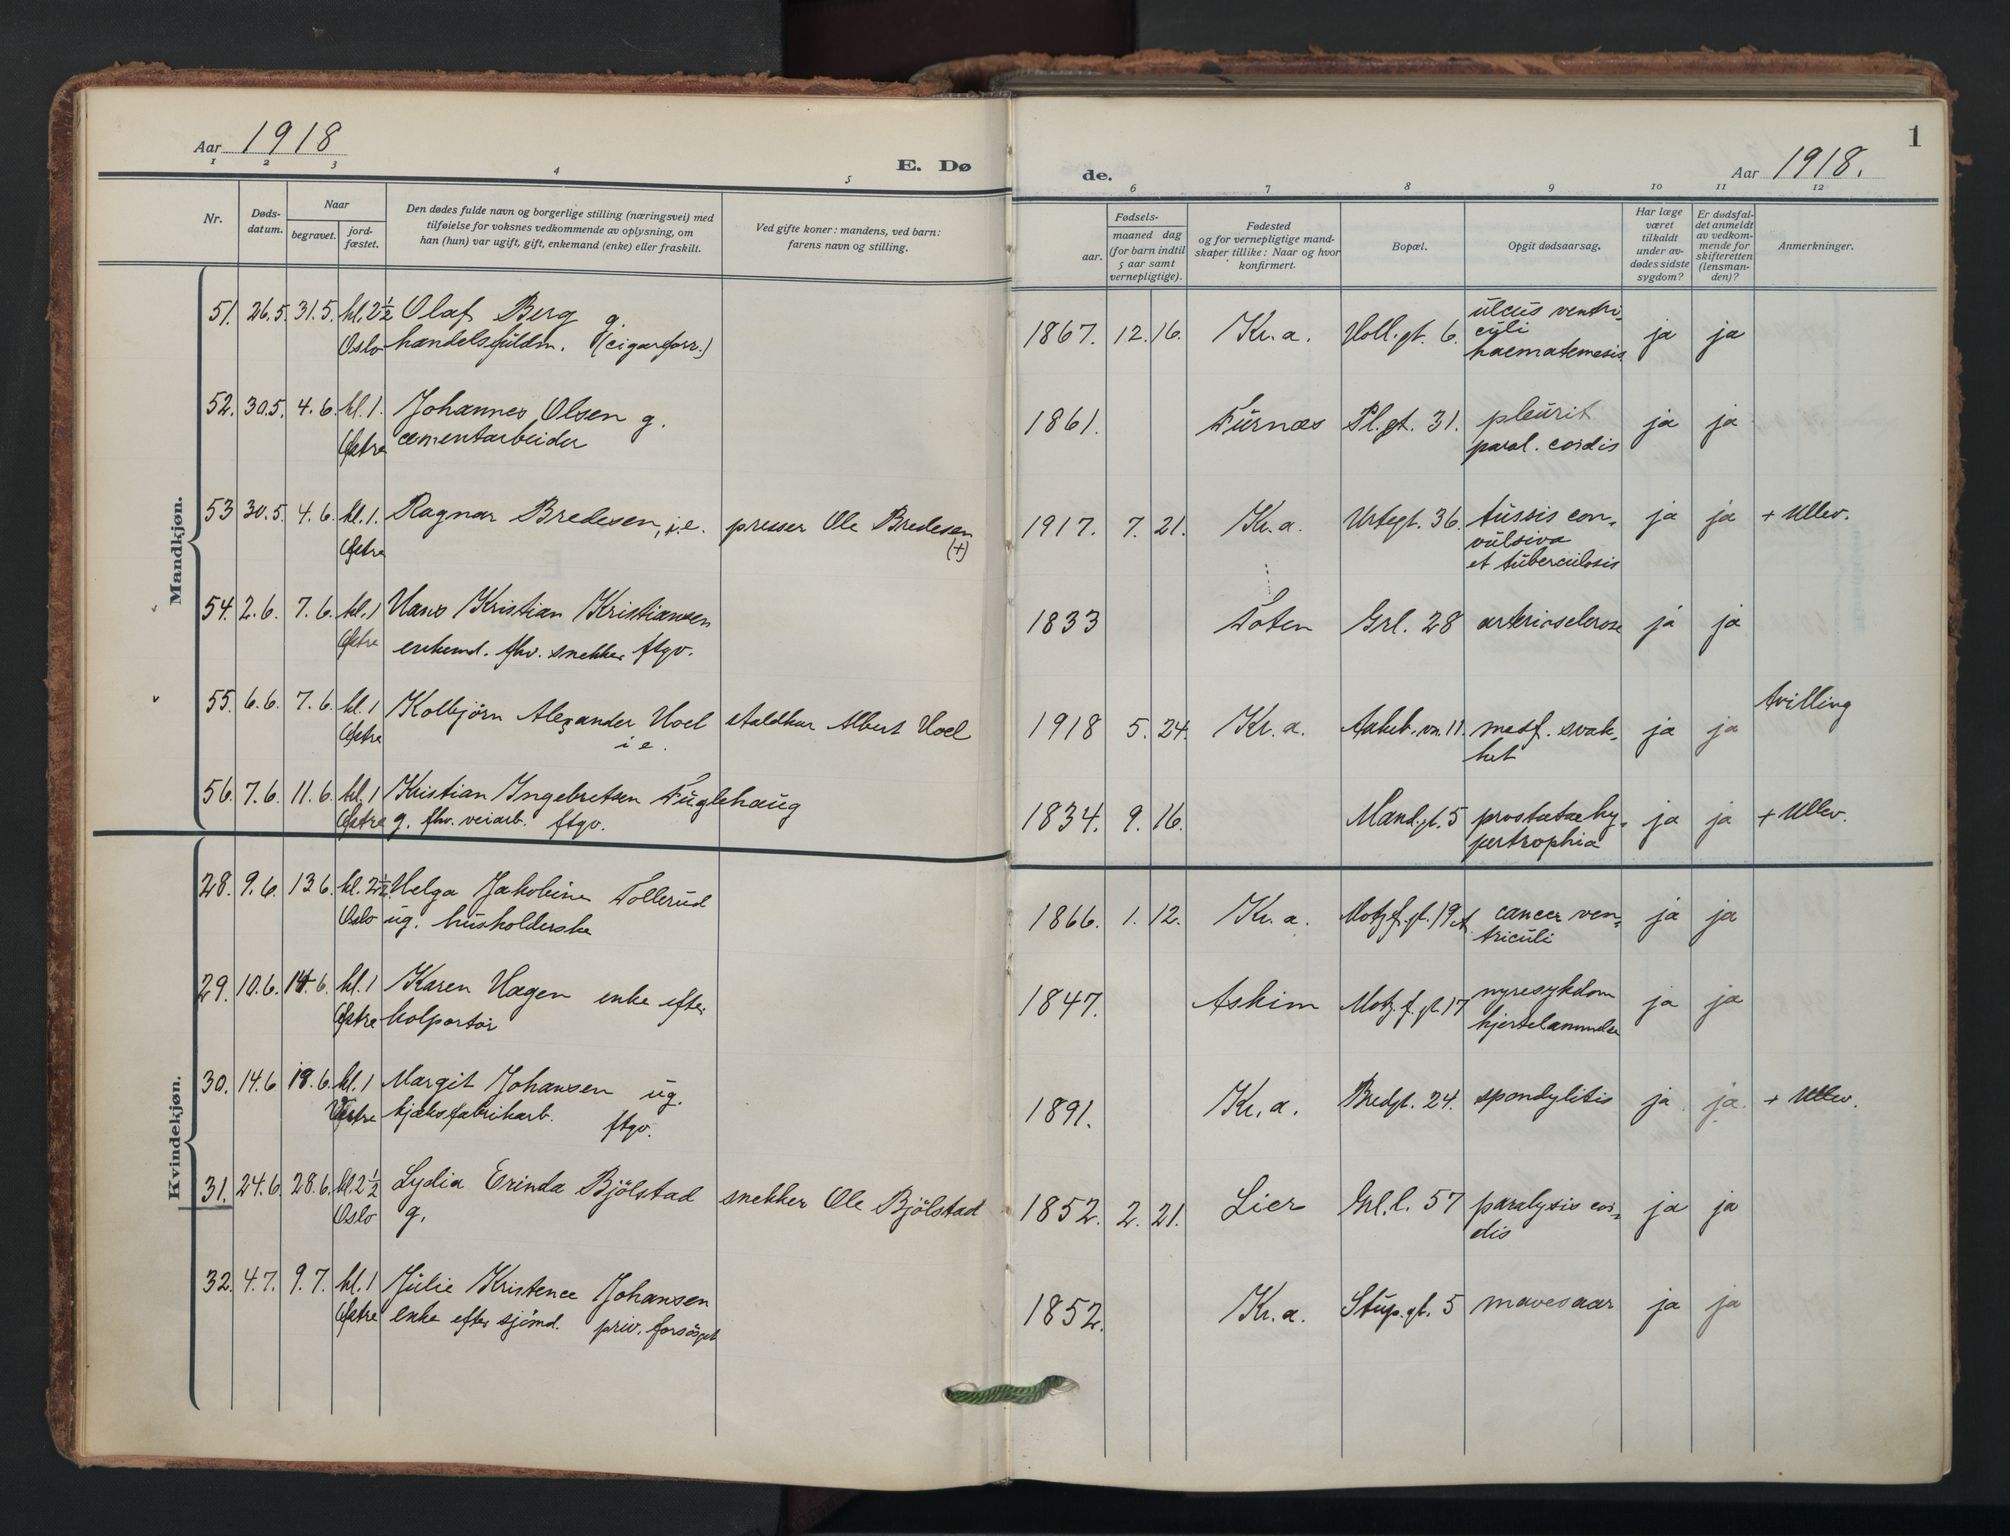 Aar 1918
E. Dø
de.
Aar 1918.
1
1 2 3 4 5 6 7 8 9 10 11 12
Nr.
Døds-
datum.
Naar
begravet.
jord-
fæstet.
Den dødes fulde navn og borgerlige stilling (næringsvei) med
tilføielse for voksnes vedkommende av oplysning, om
han (hun) var ugift, gift, enkemand (enke) eller fraskilt.
Ved gifte koner: mandens, ved barn:
farens navn og stilling.
Fødsels-
aar.
maaned dag
(for barn indtil
5 aar samt
vernepligtige).
Fødested
og for vernepligtige mand-
skaper tillike: Naar og hvor
konfirmert.
Bopæl.
Opgit dødsaarsag.
Har læge
været
tilkaldt
under av-
dødes sidste
sygdom?
Er dødsfal-
det anmeldt
av vedkom-
mende for
skifteretten
(lensman-
den)?
Anmerkninger.
Mandkjøn.
51. 26.5. 31.5. kl. 2½ Olaf Berg g. 1867. 12. 16. Kr.a. Voll.gt. 6. ulcus ventri- ja ja
Oslo handelsfuldm. (cigarforr.) culi
haematemesis
52. 30.5. 4.6. kl. 1. Johannes Olsen g. 1861. Furnæs Pl.gt. 31. pleurit ja ja
Østre cementarbeider paral. cordis
53 30.5. 4.6. kl. 1. Ragnar Bredesen, i.e. presser Ole Bredesen 1917. 7. 21. Kr.a. Urtegt. 36. tussis con- ja ja + Ullev.
Østre (+) vulsiva
et tuberculosis
54. 2.6. 7.6. kl. 1 Hans Kristian Kristiansen 1833 Toten Grl. 28 arteriosclerose ja ja
Østre enkemd. fhv. snekker ftgv.
55. 6.6. 7.6. kl. 1 Kolbjörn Alexander Hoel staldkar Albert Hoel 1918 5. 24. Kr.a. Aakeb.vn. 11. medf. svak- ja ja tvilling
Østre i e. het
56. 7.6. 11.6. kl. 1 Kristian Ingebretsen Fuglehaug 1834. 9. 16. Mand.gt. 5 prostatæ hy- ja ja + Ullev.
Østre g. fhv. veiarb. ftgv. pertrophia
Kvindekjøn.
28. 9.6. 13.6. kl. 2½ Helga Jakobine Tollerud 1866. 1. 12. Kr.a. Motzf.gt. 19 A. cancer ven- ja ja
Oslo ug. husholderske triculi
29. 10.6. 14.6. kl. 1 Karen Hagen enke efter 1847. Askim Motz.f.gt. 17 nyresykdom ja ja
Østre kolportör hjertelammelse
30. 14.6 18.6. kl. 1 Margit Johansen ug. 1891. Kr.a. Bredgt. 24. spondylitis ja. ja. + Ullev.
Vestre kjæksfabrikarb. ftgv.
31. 24.6. 28.6. kl. 2½ Lydia Erinda Bjölstad snekker Ole Bjölstad 1852. 2. 21. Lier Grl.l. 57 paralysis cor- ja ja
Oslo g. dis
32. 4.7. 9.7. kl. 1 Julie Kristence Johansen 1852. Kr.a. Stup.gt. 5 mavesaar ja ja
Østre enke efter sjömd. priv. forsörget